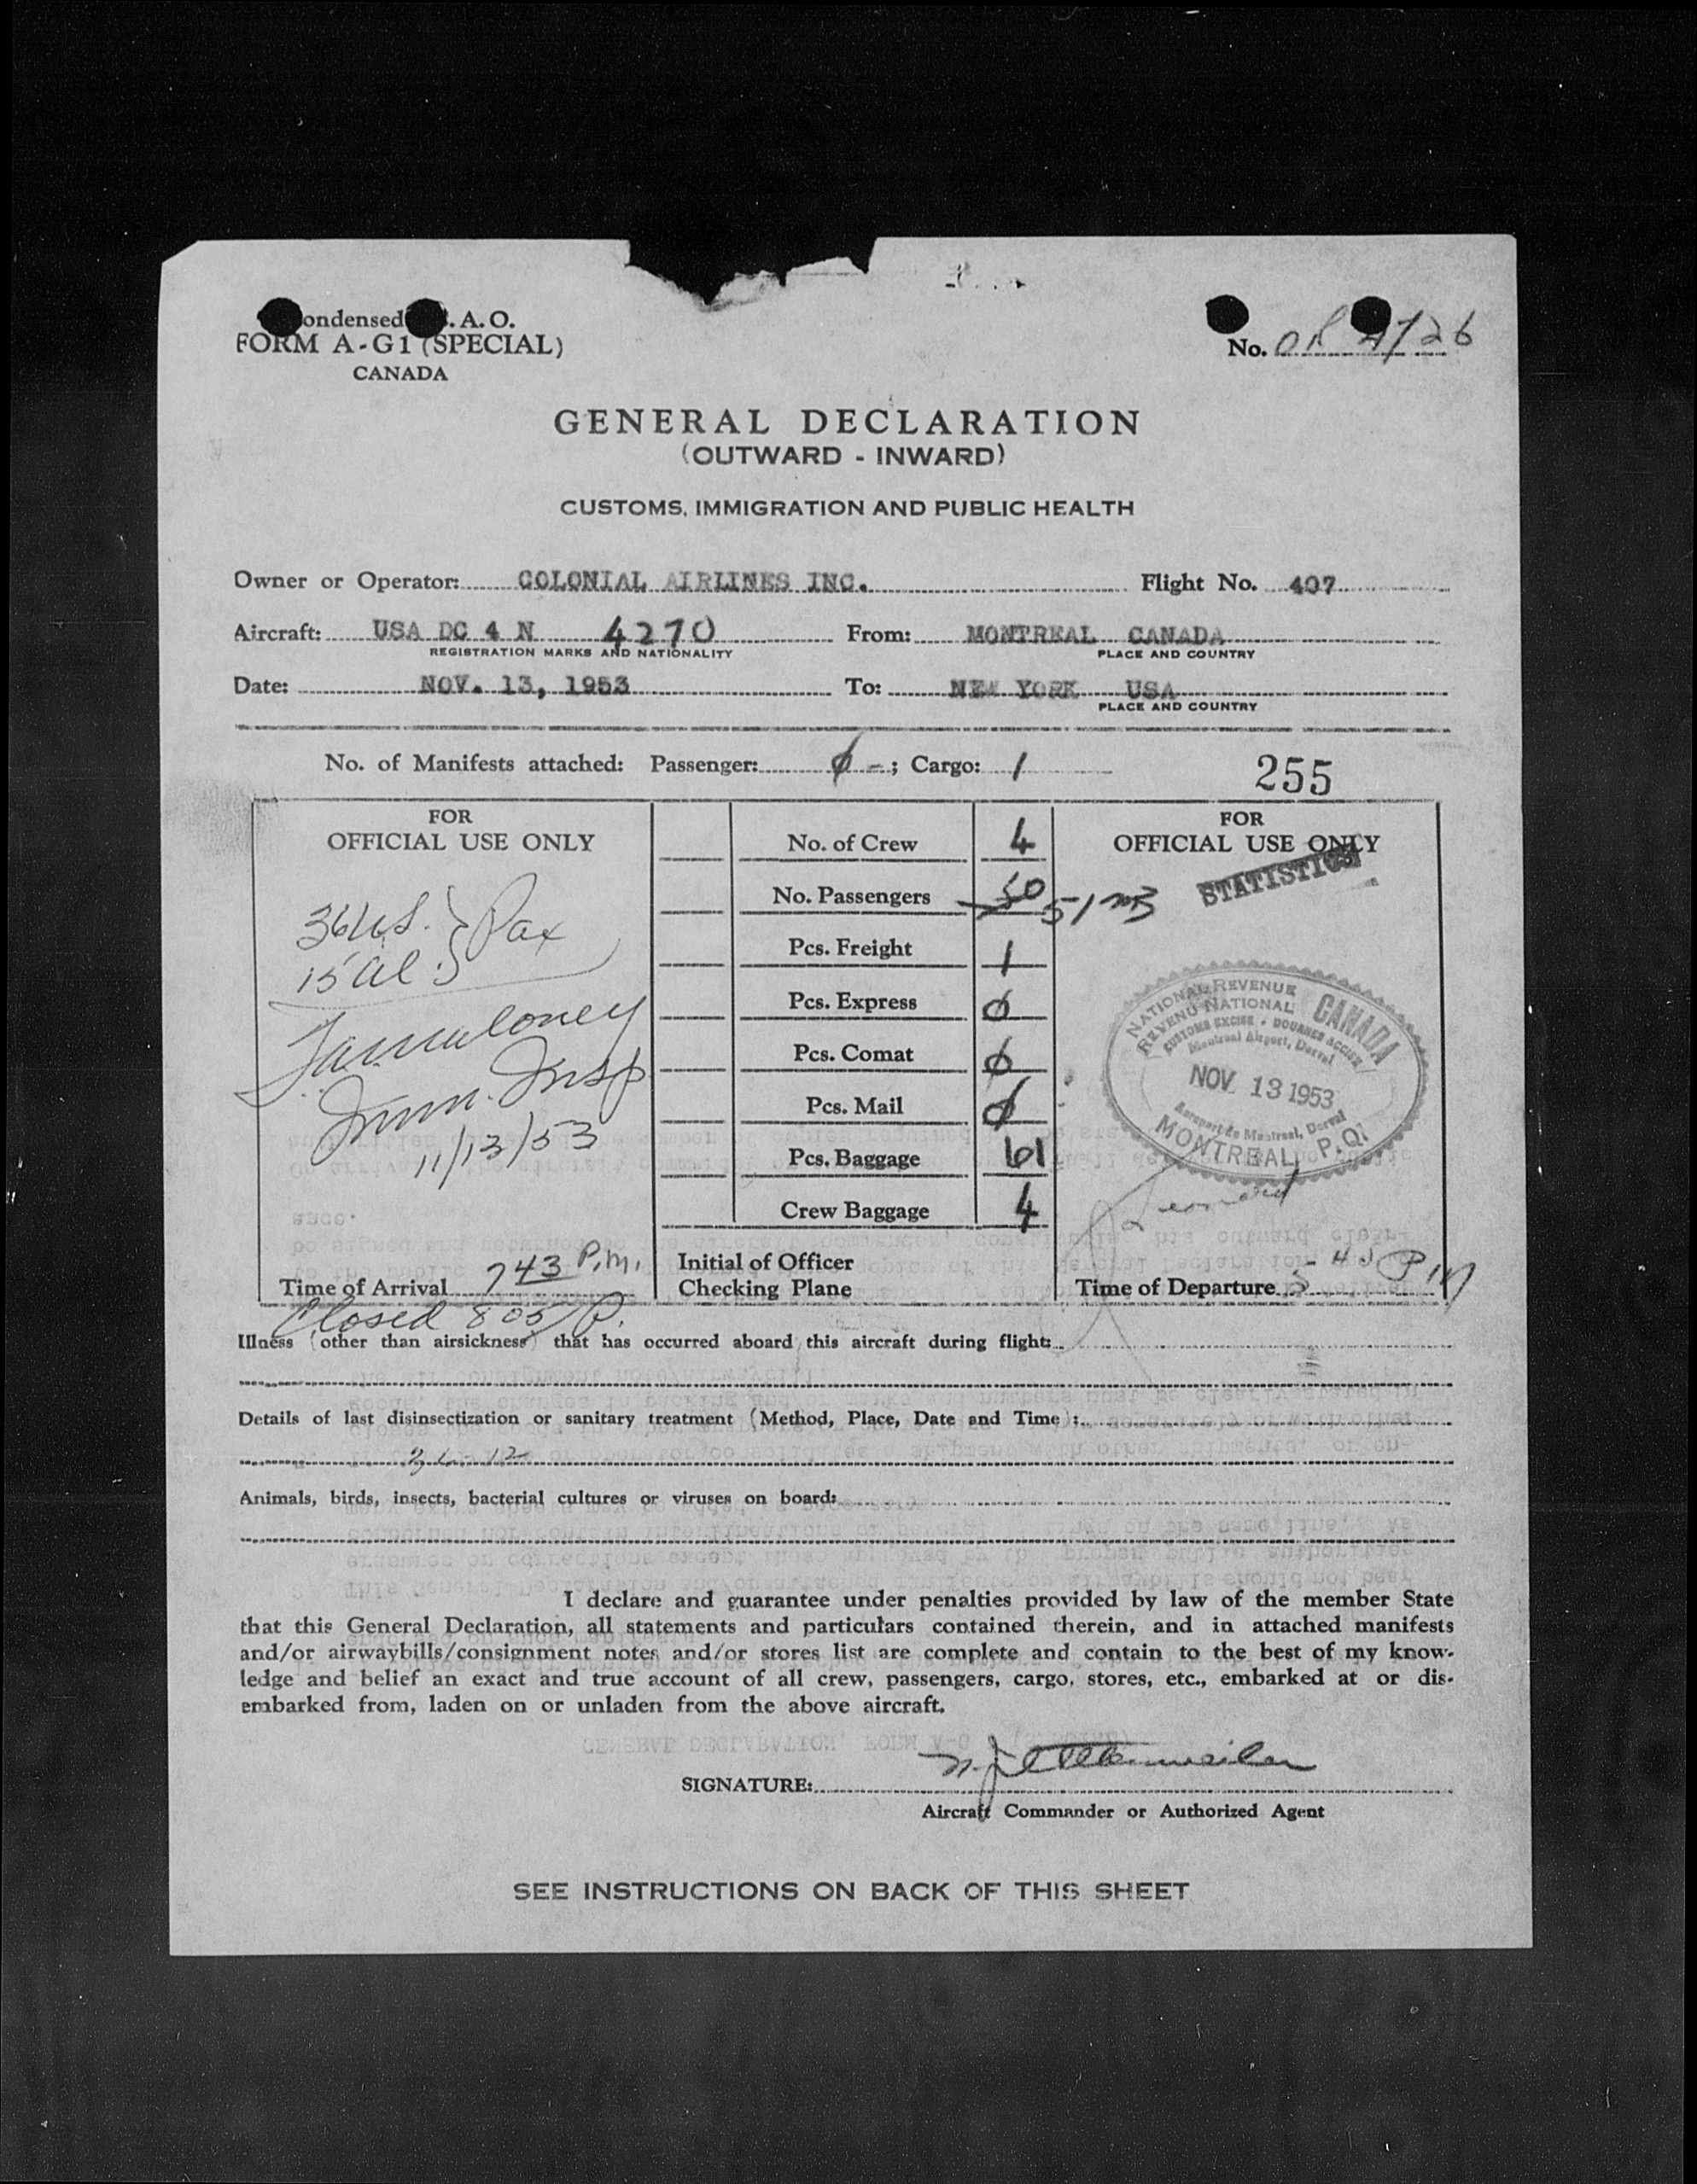 ondensed .A.O.
FORM A-G1 (SPECIAL)
CANADA
No.
GENERAL DECLARATION
(OUTWARD - INWARD)
CUSTOMS, IMMIGRATION AND PUBLIC HEALTH
Owner or Operator: COLONIAL AIRLINES INC. Flight No. 407
Aircraft: USA DC 4 N 4270 From: MONTREAL CANADA
REGISTRATION MARKS AND NATIONALITY PLACE AND COUNTRY
Date: NOV. 13, 1953 To: NEW YORK USA
PLACE AND COUNTRY
No. of Manifests attached: Passenger: ∅ -; Cargo: 1
255
FOR
OFFICIAL USE ONLY
36 U.S. } Pax
15 al }
Imm. Insp
11/13/53
Time of Arrival 7 43 P.M.
Closed 805 P.
No. of Crew 4
No. Passengers 50 51
Pcs. Freight 1
Pcs. Express ∅
Pcs. Comat ∅
Pcs. Mail ∅
Pcs. Baggage 61
Crew Baggage 4
Initial of Officer
Checking Plane
FOR
OFFICIAL USE ONLY
STATISTICS
NATIONAL REVENUE
REVENU NATIONAL
CANADA
CUSTOMS EXCISE • DOUANES ACCISE
Montreal Airport, Dorval
NOV. 13 1953
Aeroport de Montreal, Dorval
MONTREAL, P.Q.
Time of Departure 5 45 PM
Illness (other than airsickness) that has occurred aboard this aircraft during flight:
Details of last disinsectization or sanitary treatment (Method, Place, Date and Time):
Animals, birds, insects, bacterial cultures or viruses on board:
I declare and guarantee under penalties provided by law of the member State
that this General Declaration, all statements and particulars contained therein, and in attached manifests
and/or airwaybills/consignment notes and/or stores list are complete and contain to the best of my know-
ledge and belief an exact and true account of all crew, passengers, cargo, stores, etc., embarked at or dis-
embarked from, laden on or unladen from the above aircraft.
SIGNATURE:
Aircraft Commander or Authorized Agent
SEE INSTRUCTIONS ON BACK OF THIS SHEET